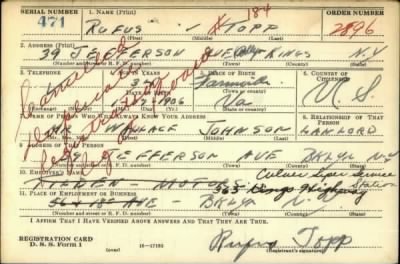 SERIAL NUMBER 1. NAME (Print) # 184 ORDER NUMBER
471 RUFUS TOPP 2896
(First) (Middle) (Last)
2. ADDRESS (Print)
39 JEFFERSON AVE KINGS N.Y
(Number and street or R. F. D. number) (Town) (County) (State)
3. TELEPHONE 4. AGE IN YEARS 5. PLACE OF BIRTH 6. COUNTRY OF CITIZENSHIP
DATE OF BIRTH
1906 Va U. S.
(Exchange) (No.) (Mo.) (Day) (Yr.) (State or country)
7. NAME OF PERSON WHO WILL ALWAYS KNOW YOUR ADDRESS 8. RELATIONSHIP OF THAT PERSON
MR WALLACE JOHNSON LANLORD
(Mr., Mrs., Miss) (First) (Middle) (Last)
9. ADDRESS OF THAT PERSON
39 JEFFERSON AVE BKLYN N.Y
(Number and street or R. F. D. number) (Town) (County) (State)
10. EMPLOYER'S NAME Culver Service Station
MOTORS 565 Kings Highway
11. PLACE OF EMPLOYMENT OR BUSINESS
56 & 18th AVE - BKLYN N.Y
(Number and street or R. F. D. number) (Town) (County) (State)
I AFFIRM THAT I HAVE VERIFIED ABOVE ANSWERS AND THAT THEY ARE TRUE.
REGISTRATION CARD
D. S. S. Form 1 (over) 16-17105 Rufus Topp
(Registrant's signature)